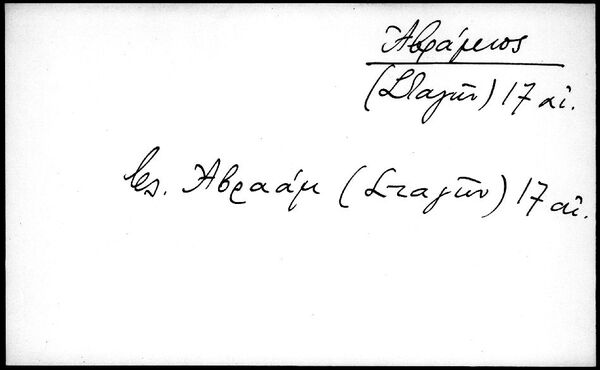 Ἀβράμιος
(Σταγῶν) 17 αἰ.
βλ. Ἀβραάμ (Σταγῶν) 17 αἰ.